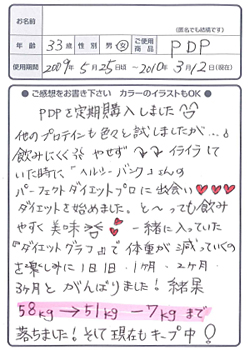 お名前
(匿名でも結構です)
年齢 33歳 性別 男・女 ご使用商品 PDP
使用期間 2009年5月25日頃〜2010年3月12日(現在)
●ご感想をお書き下さい カラーのイラストもOK●
PDPを定期購入しました
他のプロテインも色々と試しましたが…♪
飲みにくくやせず イライラして
いた時に「ヘルシーバンク」さんの
パーフェクトダイエットプロに出会い♥♥♥
ダイエットを始めました。と〜っても飲み
やすく美味 一緒に入っていた
『ダイエットグラフ』で体重が減っていくの
を楽しみに1日1日・1ヶ月・2ヶ月・
3ヶ月とがんばりました!結果
58kg→51kg −7kgまで
落ちました!そして現在もキープ中!